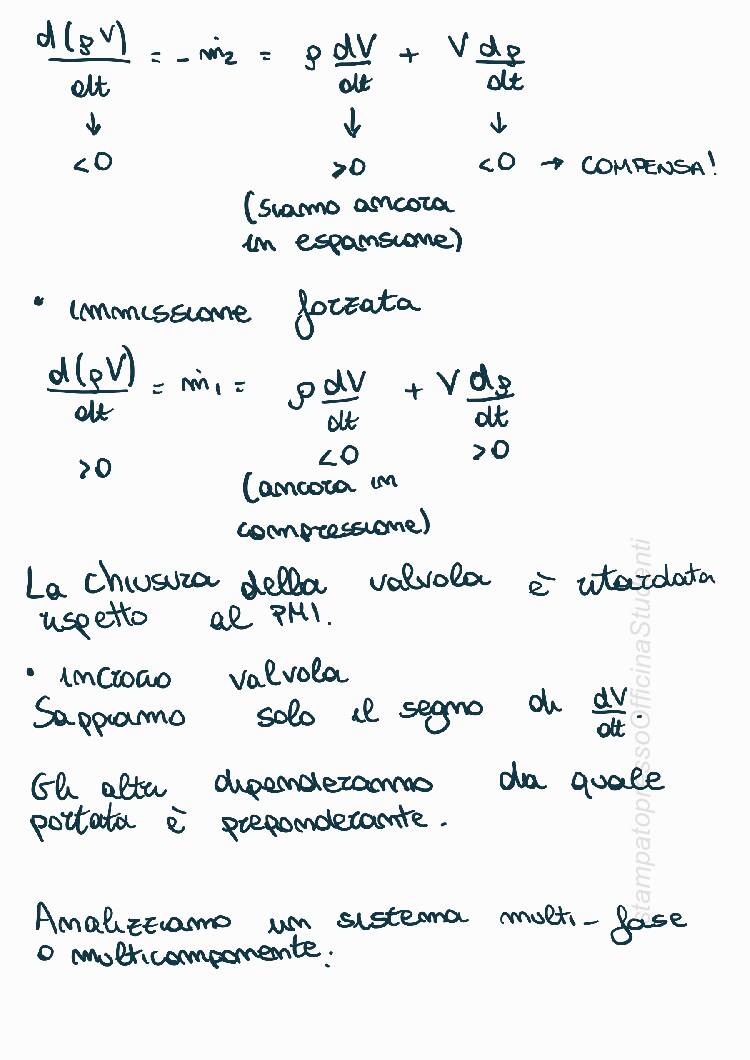 d(ρV)/dt = - ṁ₂ = ρ dV/dt + V dρ/dt
↓ ↓ ↓
<0 >0 <0 → COMPENSA!
(siamo ancora
in espansione)
• immissione forzata
d(ρV)/dt = ṁ₁ = ρ dV/dt + V dρ/dt
>0 <0 >0
(ancora in
compressione)
La chiusura della valvola è ritardata
rispetto al PMI.
• incrocio valvola
Sappiamo solo il segno di dV/dt.
Gli altri dipenderanno da quale
portata è preponderante.
Analizziamo un sistema multi-fase
o multicomponente:
stampatopressoOfficinaStudenti